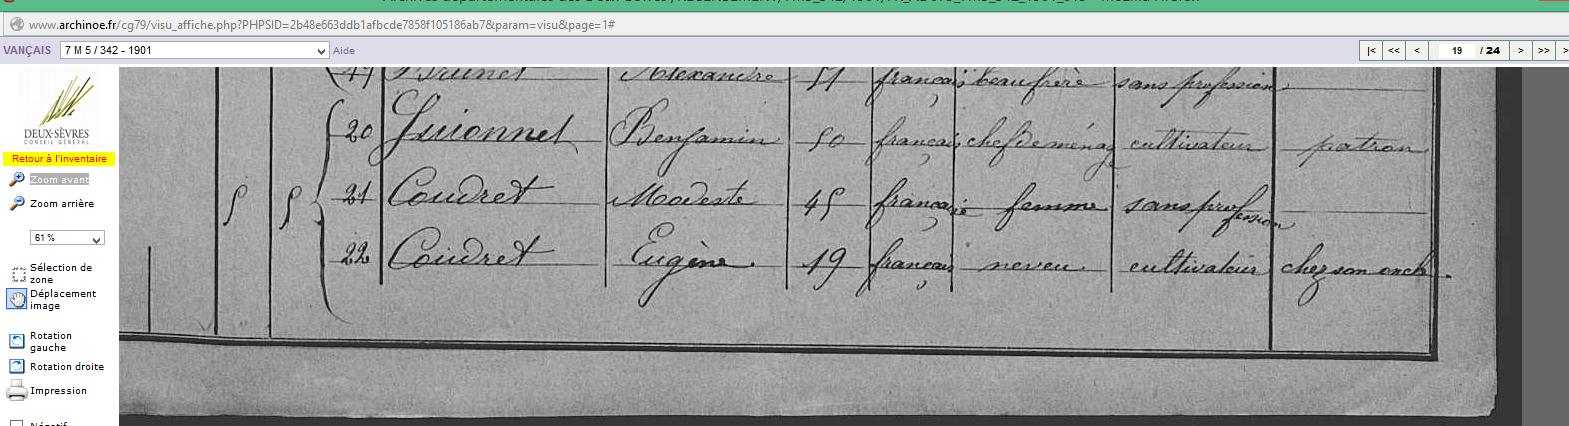 www.archinoe.fr/cg79/visu_affiche.php?PHPSID=2b48e663ddb1afbcde7858f105186ab7&param=visu&page=1#
VANÇAIS 7 M 5 / 342 - 1901 Aide |< << < 19 / 24 > >>
DEUX-SÈVRES
CONSEIL GÉNÉRAL
Retour à l'inventaire
Zoom avant
Zoom arrière
61 %
Sélection de
zone
Déplacement
image
Rotation
gauche
Rotation droite
Impression
Négatif
Brunet Alexandre 51 français beaufrère sans profession
20 Guionnet Benjamin 50 français chef de ménage cultivateur patron
21 Coudret Modeste 45 française femme sans profession
22 Coudret Eugène 19 français neveu cultivateur chez son oncle